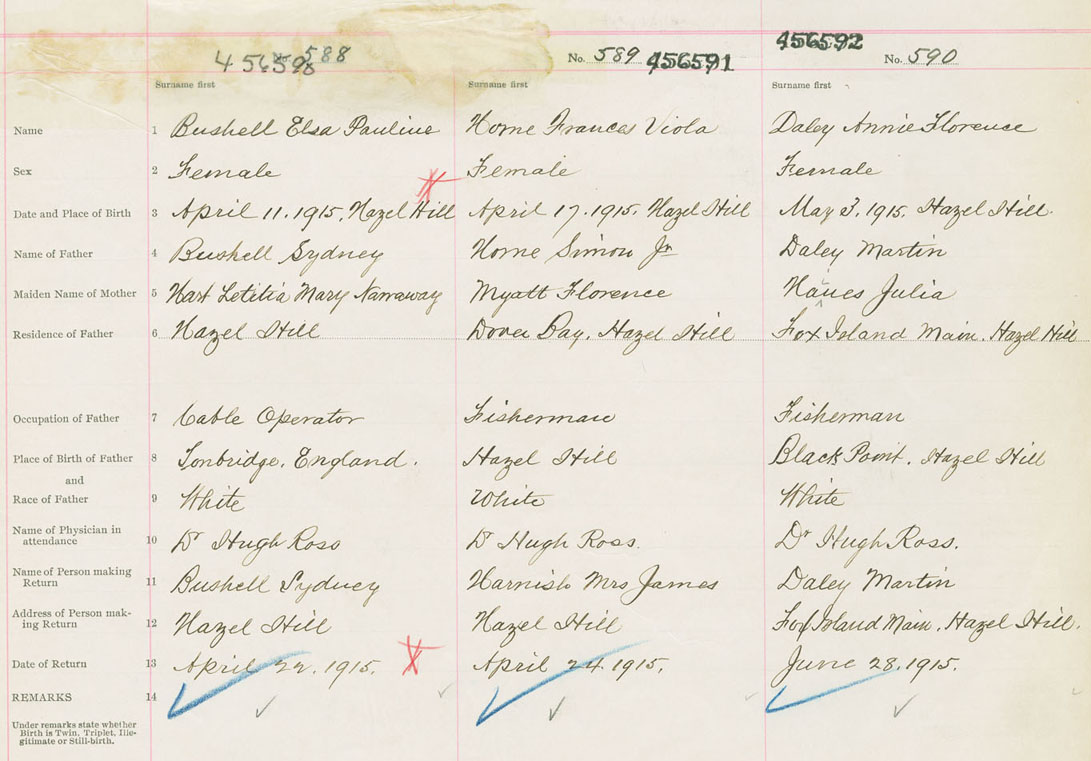 588 No. 589 456591 456592 No. 590
Surname first Surname first Surname first
Name 1 Bushell Elsa Pauline Horne Frances Viola Daley Annie Florence
Sex 2 Female Female Female
Date and Place of Birth 3 April 11. 1915, Hazel Hill April 17. 1915. Hazel Hill May 3, 1915. Hazel Hill.
Name of Father 4 Bushell Sydney Horne Simon Jr Daley Martin
Maiden Name of Mother 5 Hart Letitia Mary Narraway Myatt Florence Julia
Residence of Father 6 Hazel Hill Dover Bay, Hazel Hill Fox Island Main. Hazel Hill
Occupation of Father 7 Cable Operator Fisherman Fisherman
Place of Birth of Father 8 Tonbridge, England. Hazel Hill Black Point. Hazel Hill
and
Race of Father 9 White White White
Name of Physician in
attendance 10 Dr Hugh Ross Dr Hugh Ross. Dr Hugh Ross.
Name of Person making
Return 11 Bushell Sydney Harnish Mrs James Daley Martin
Address of Person mak-
ing Return 12 Hazel Hill Hazel Hill Fox Island Main, Hazel Hill.
Date of Return 13 April 22. 1915. April 24. 1915. June 28. 1915.
REMARKS 14
Under remarks state whether
Birth is Twin, Triplet, Ille-
gitimate or Still-birth.